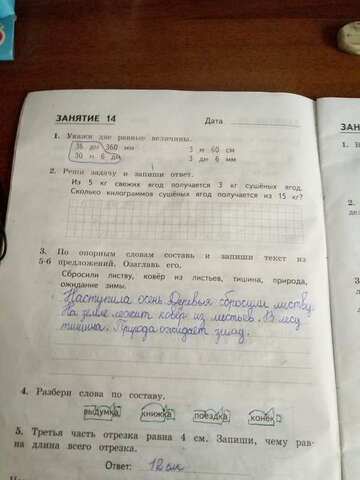 ЗАНЯТИЕ 14
Дата
1. Укажи две равные величины.
36 дм 360 мм 3 м 60 см
30 м 6 дм 3 дм 6 см
2. Реши задачу и запиши ответ.
Из 5 кг свежих ягод получается 3 кг сушёных ягод.
Сколько килограммов сушёных ягод получается из 15 кг?
3. По опорным словам составь и запиши текст из
5-6 предложений. Озаглавь его.
Сбросили листву, ковёр из листьев, тишина, природа,
ожидание зимы.
Наступила осень. Деревья сбросили листву.
На земле лежит ковёр из листьев. В лесу
тишина. Природа ожидает зиму.
4. Разбери слова по составу.
выдумка, книжка, поездка, конёк
5. Третья часть отрезка равна 4 см. Запиши, чему рав-
на длина всего отрезка.
Ответ: 12 см
ЗАН
1.
2.
3.
4.
5.